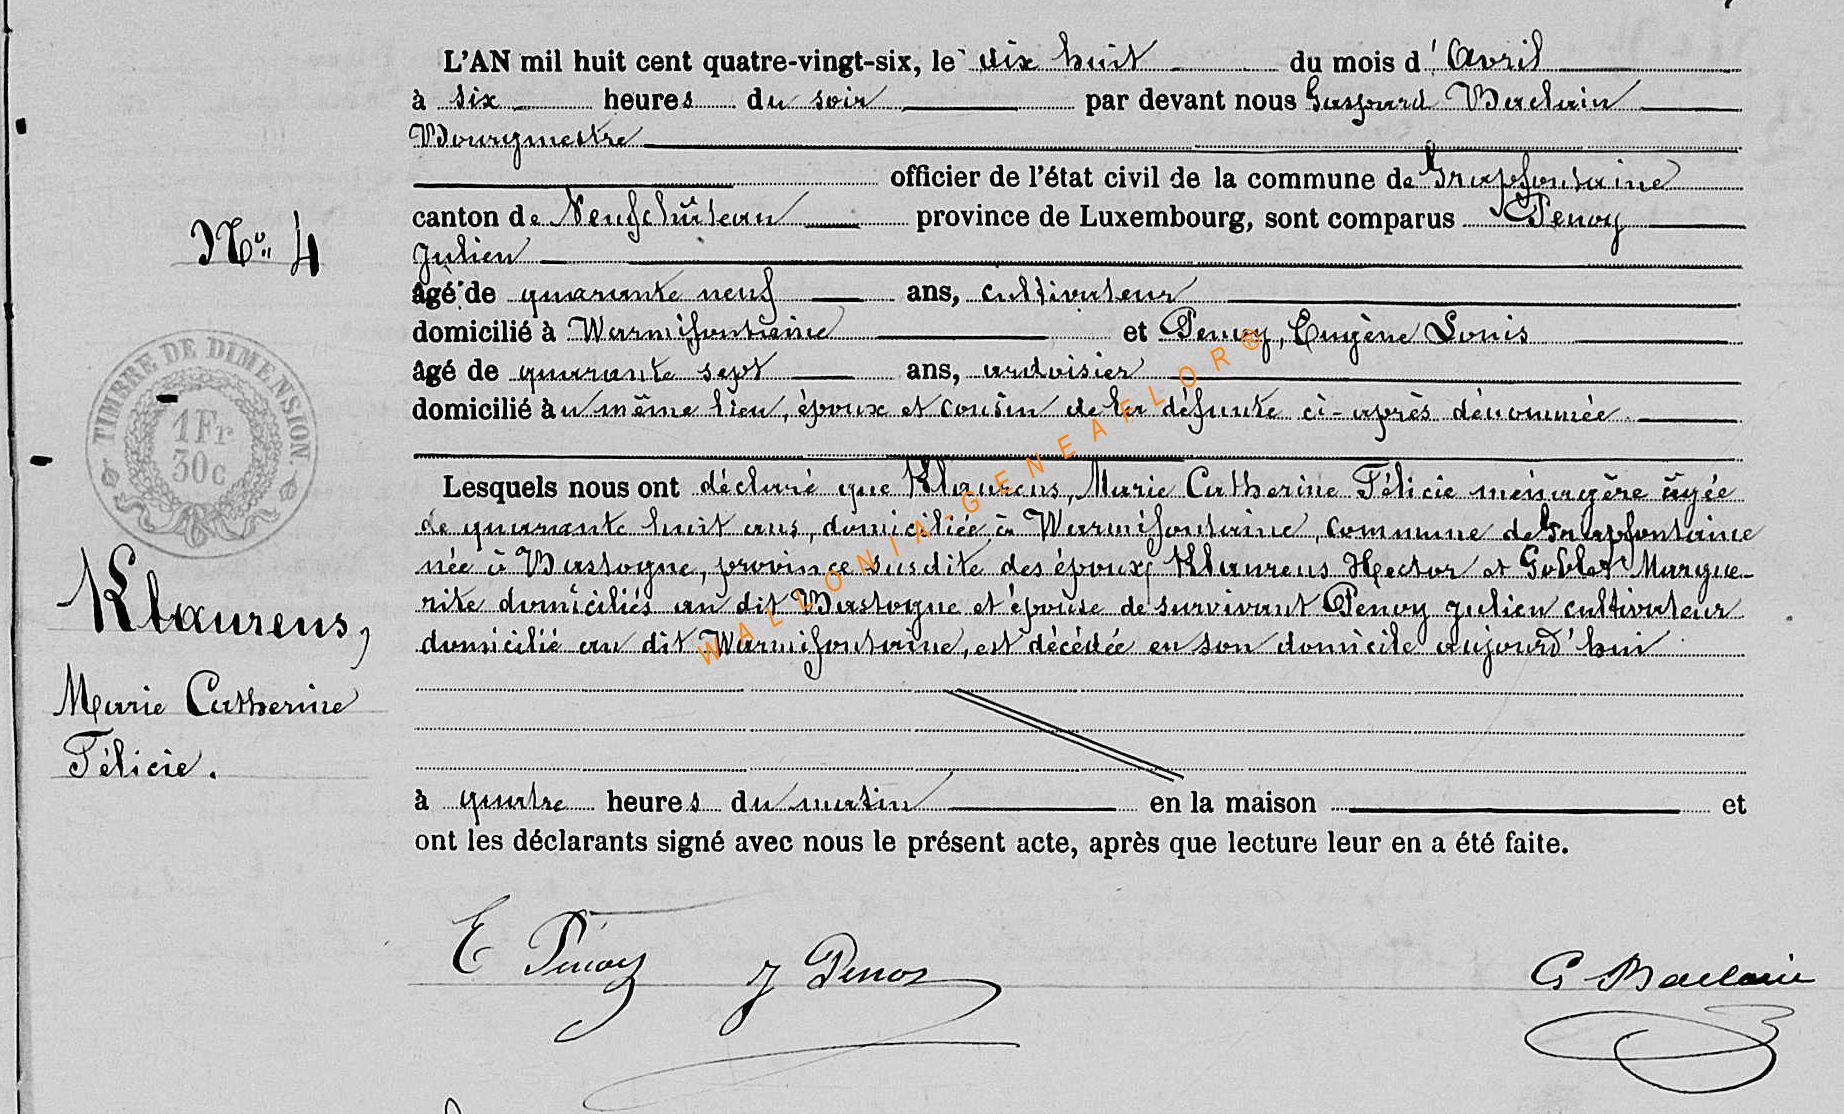 L'AN mil huit cent quatre-vingt-six, le dix huit du mois d'Avril
à six heures du soir par devant nous Gaspard Baclain
Bourgmestre
officier de l'état civil de la commune de Grapfontaine
canton de Neufchâteau province de Luxembourg, sont comparus Penoy
Julien
âgé de quarante neuf ans, cultivateur
domicilié à Warmifontaine et Penoy, Eugène Louis
âgé de quarante sept ans, ardoisier
domicilié au même lieu, époux et cousin de la défunte ci-après dénommée
Lesquels nous ont déclaré que Klaurens, Marie Catherine Félicie ménagère âgée
de quarante huit ans, domiciliée à Warmifontaine, commune de Grapfontaine
née à Bastogne, province susdite des époux Klaurens Hector et Goblet Margue-
rite domiciliés au dit Bastogne et épouse de survivant Penoy Julien cultivateur
domicilié au dit Warmifontaine, est décédée en son domicile aujourd'hui
à quatre heures du matin en la maison et
ont les déclarants signé avec nous le présent acte, après que lecture leur en a été faite.
E Penoy J Penoy G Baclain
No. 4
TIMBRE DE DIMENSION.
1 Fr
30c
Klaurens,
Marie Catherine
Félicie.
WALLONIA-GENEAFLOR®